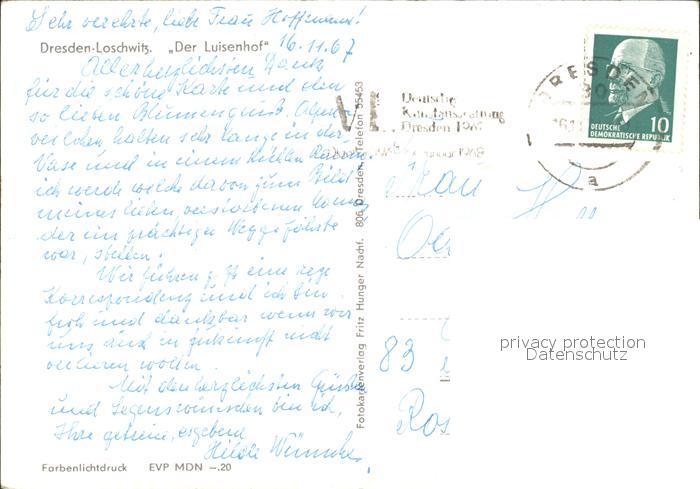 Sehr verehrte, liebe Frau Hoffmann!
Dresden-Loschwitz. „Der Luisenhof"
16.11.67
Allerherzlichsten Dank
für die schöne Karte und den
so lieben Blumengruß. Alpen
veilchen halten sehr lange in der
Vase und in einem kühlen Raum.
ich werde welche davon zum Bild
meines lieben, verstorbenen
der ein prächtiger Weggefährte
war, stellen.
Wir führen z. Zt. eine rege
Korrespondenz und ich bin
froh und dankbar wenn wir
uns auch in Zukunft nicht
verlieren wollen.
Mit den herzlichsten Grüßen
und Segenswünschen bin ich,
Ihre getreue, ergebene
Hilde
Farbenlichtdruck EVP MDN –.20
Fotokartenverlag Fritz Hunger Nachf. 806 Dresden, Telefon 55453
Deutsche
Kunstausstellung
Dresden 1967
1968
DRESDEN
a
DEUTSCHE
DEMOKRATISCHE REPUBLIK
10
Frau
H
83
Ros
privacy protection
Datenschutz